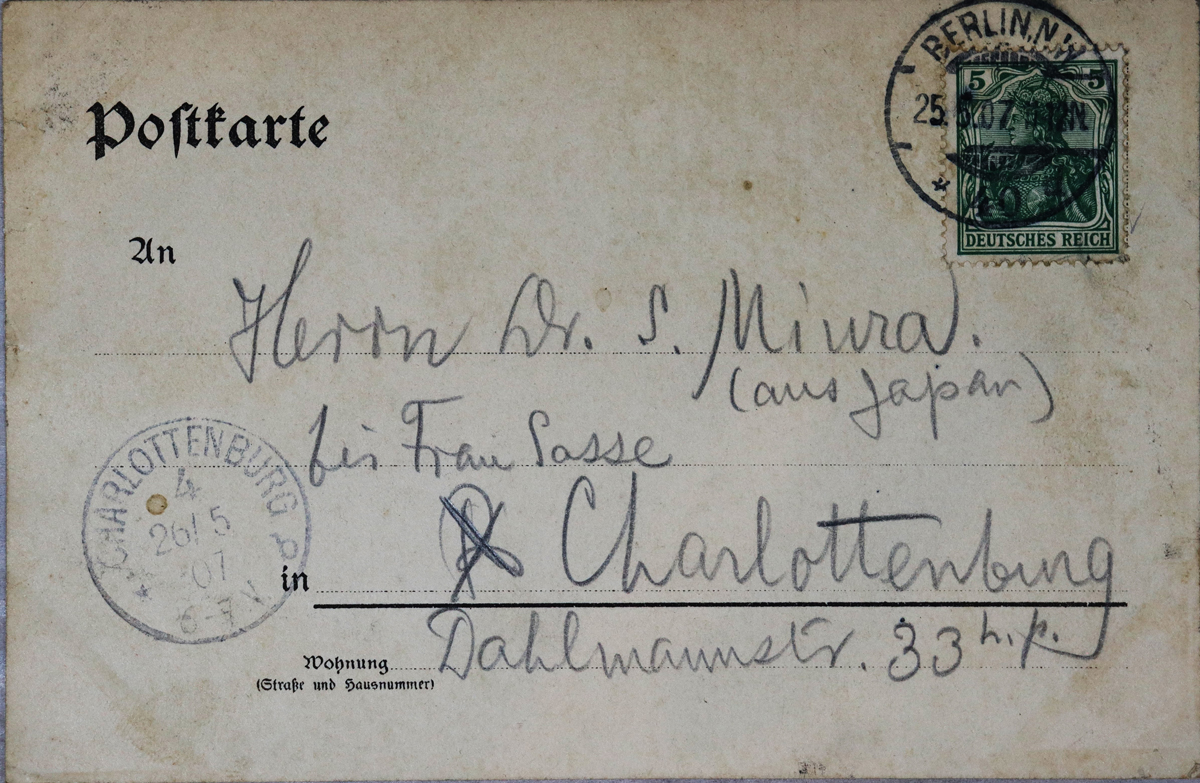 BERLIN.N.W
5 5
25.5.07.
DEUTSCHES REICH
Postkarte
An
Herrn Dr. S. Miura.
(aus Japan)
bei Frau Sasse
CHARLOTTENBURG
4
26/5
07
6-7 V
in Charlottenburg
Dahlmannstr. 33 h.p.
Wohnung
(Straße und Hausnummer)